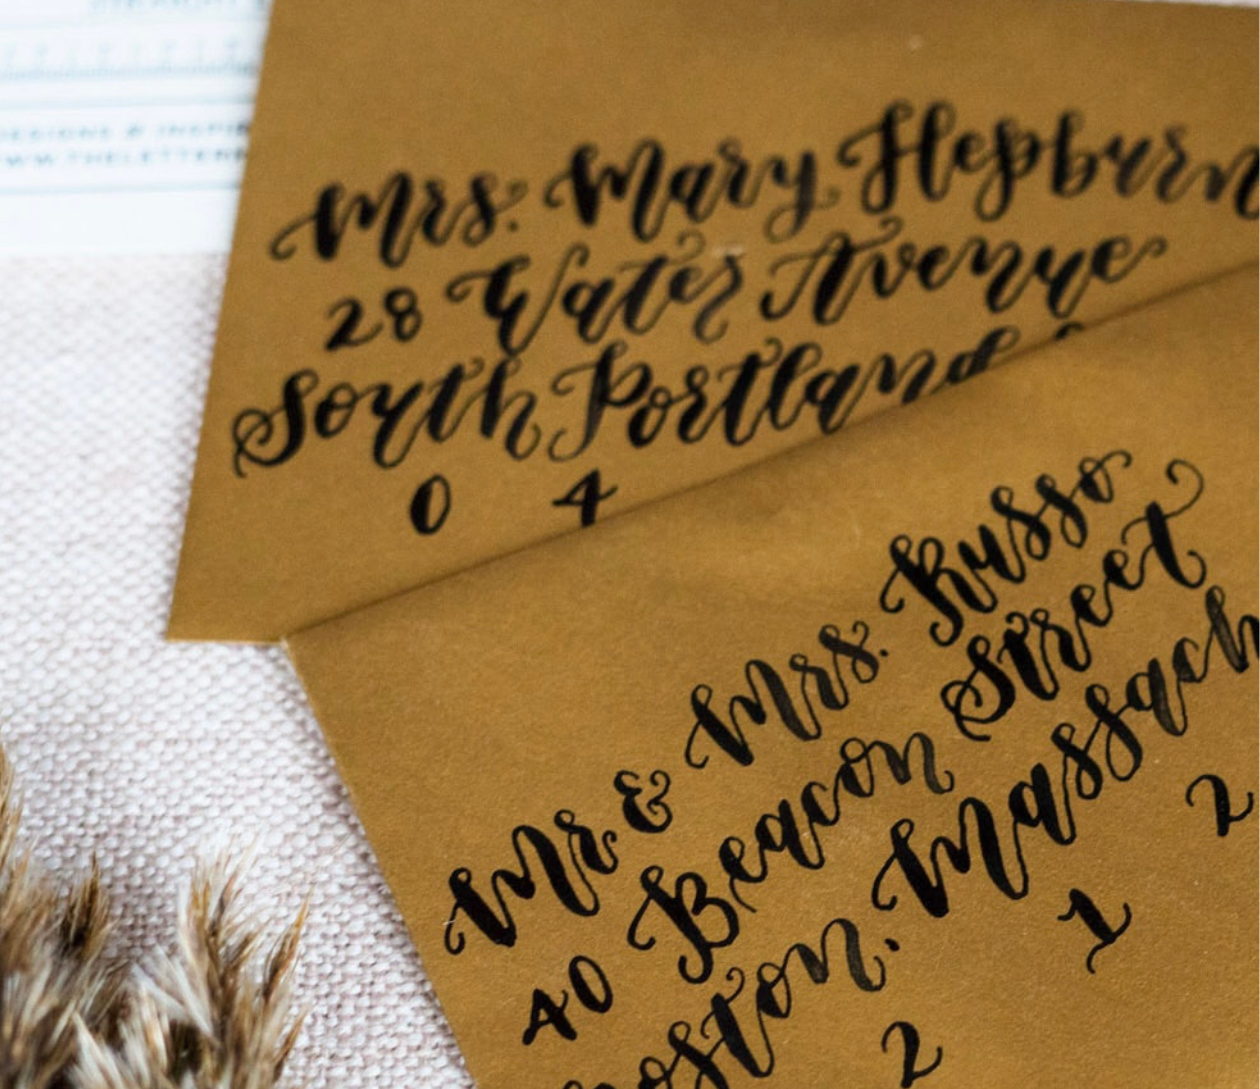 Mrs. Mary Hepburn
28 Water Avenue
South Portland
0 4
Mr & Mrs. Russo
40 Beacon Street
oston, Massach
2 1 2